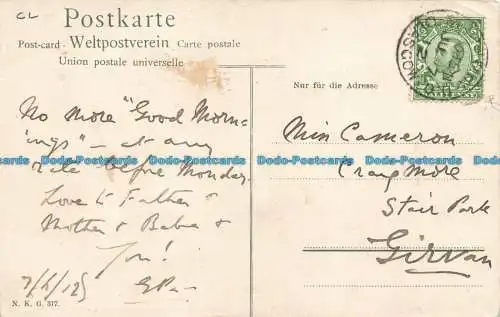 CL
Postkarte
Post-card - Weltpostverein Carte postale
Union postale universelle
Nur für die Adresse
GLASGOW
No more "Good Morn-
ings" — at any
rate before Monday.
Love to Father &
Mother & Babs &
You!
Miss Cameron
Craigmore
Stair Park
Girvan
N. K. G. 317.
Dodo-Postcards Dodo-Postcards Dodo-Postcards Dodo-Postcards Dodo-Postcards